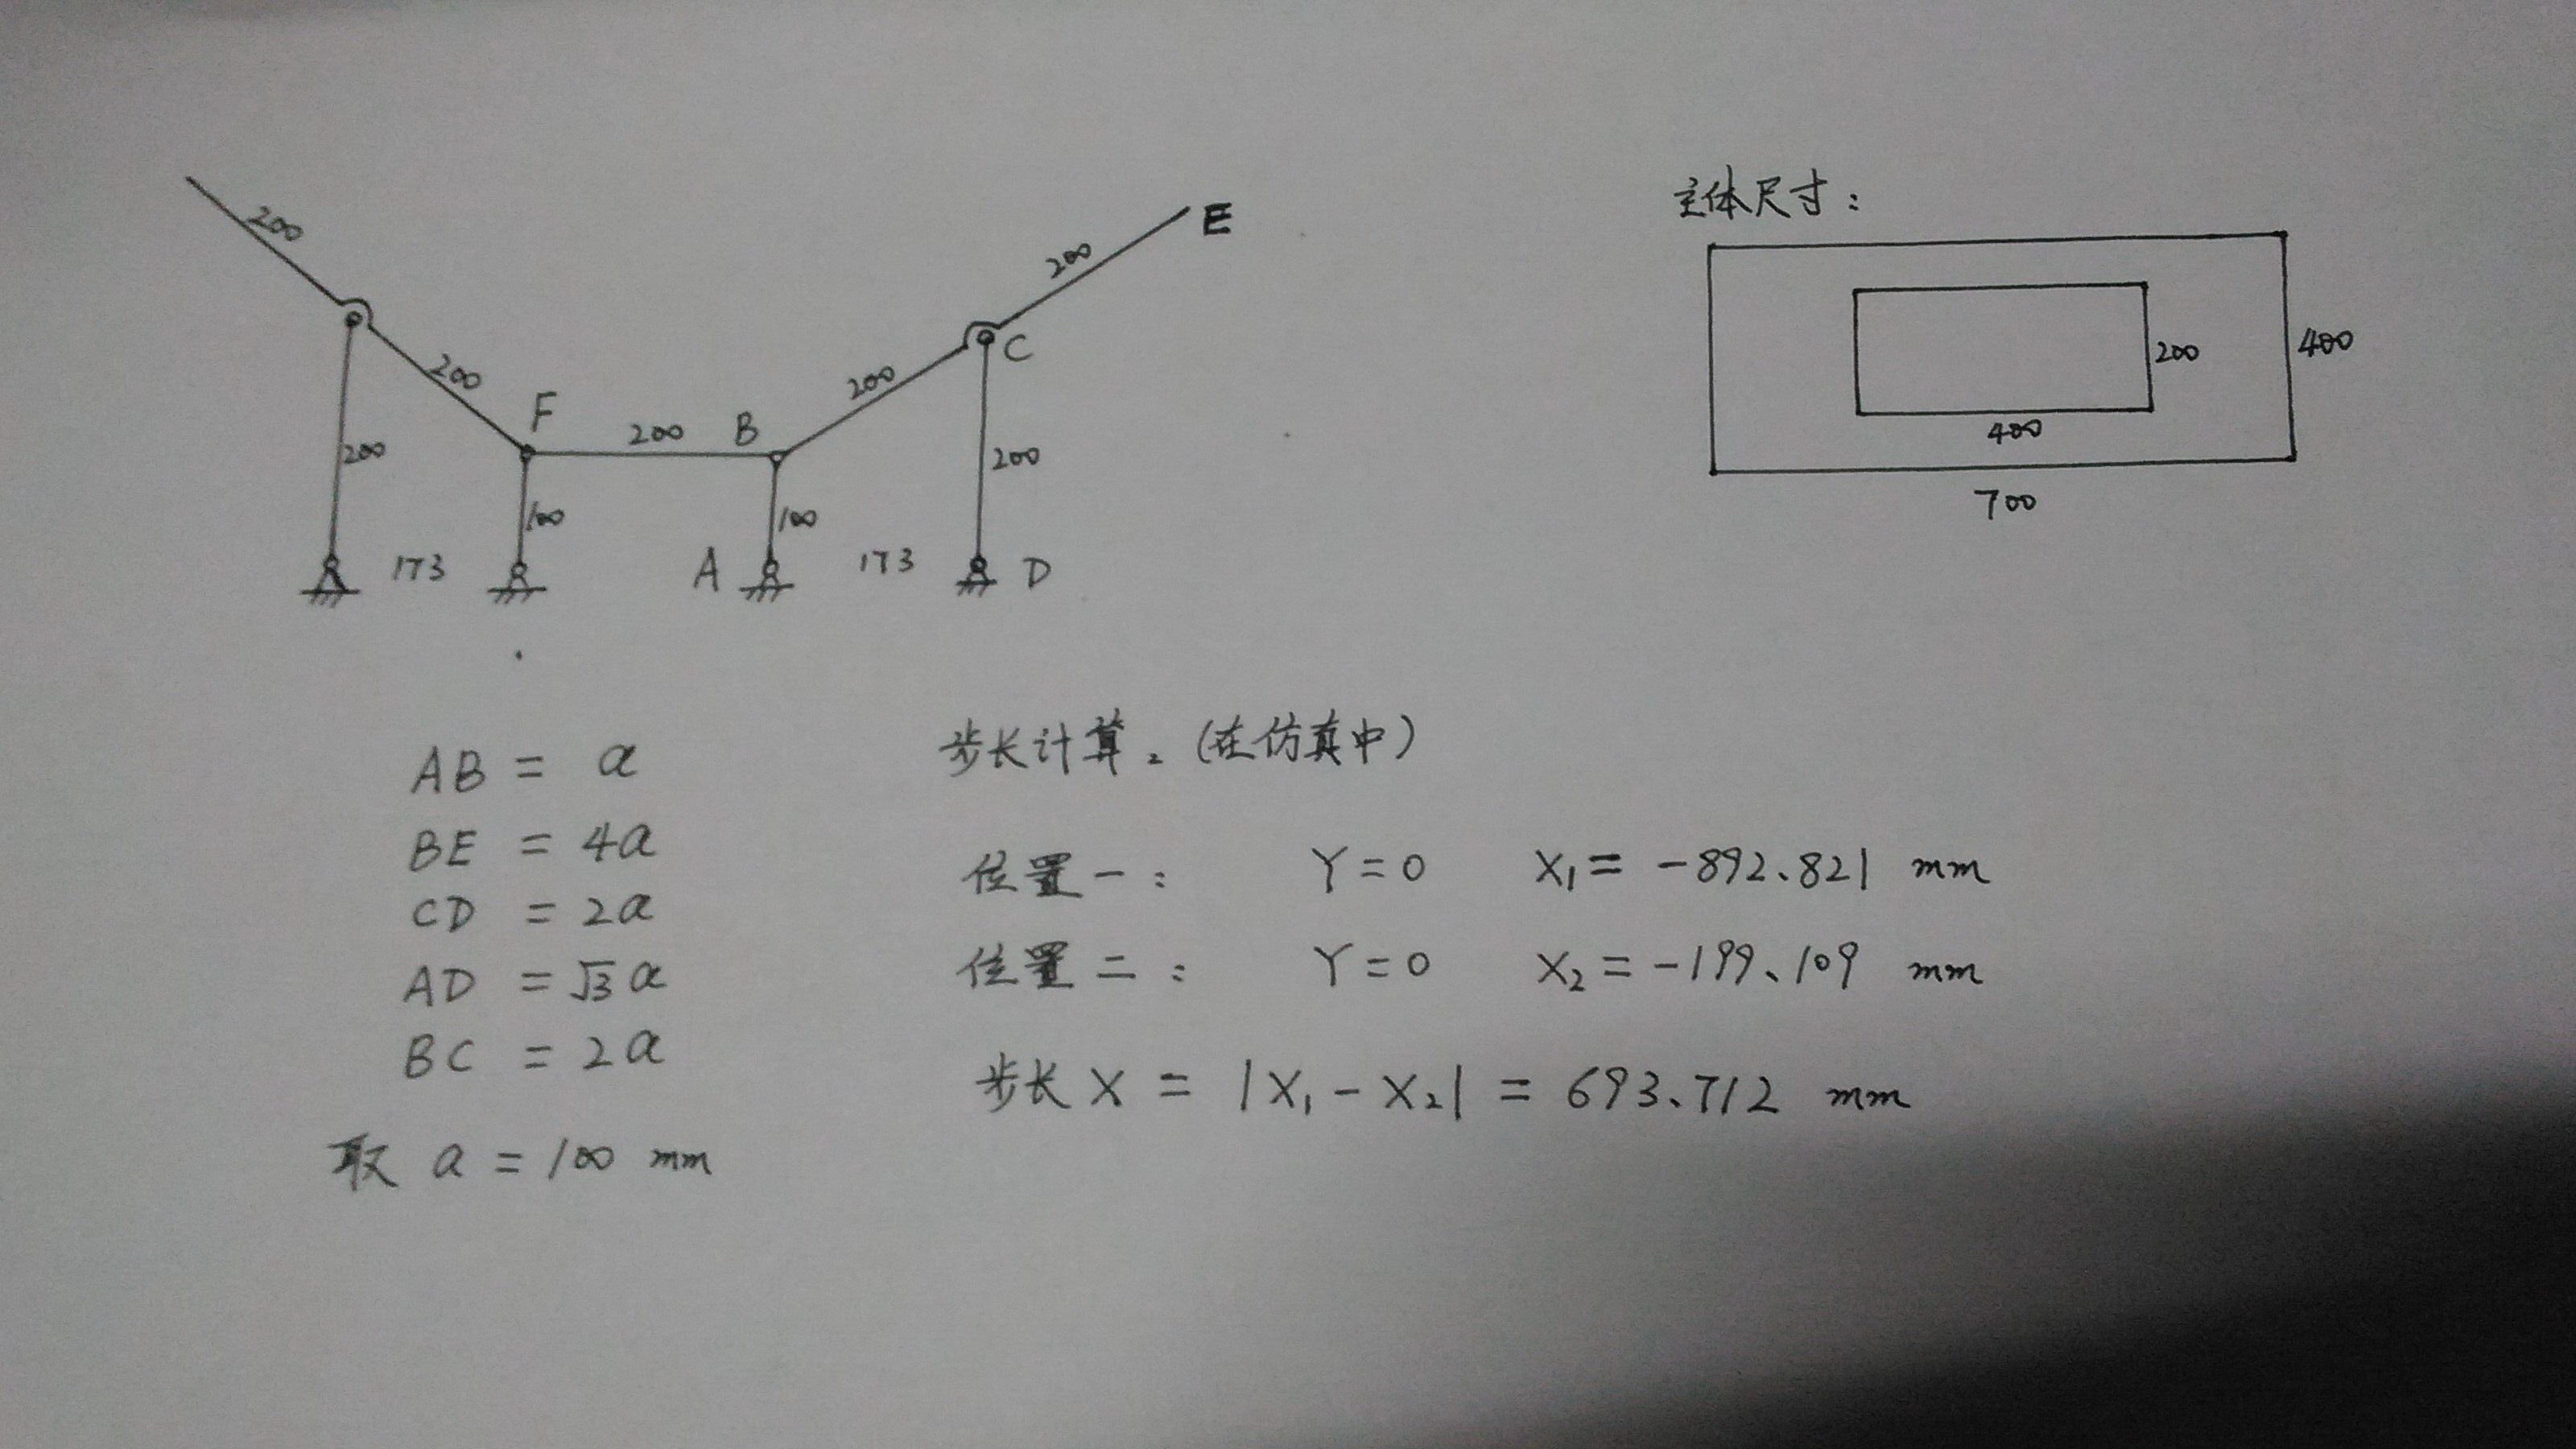 主体尺寸：
200
E
200
200
400
C
200
200
F
200
B
400
200
200
700
100
100
173
A
173
D
步长计算。(在仿真中)
AB = a
BE = 4a
CD = 2a
AD = √3 a
BC = 2a
取 a = 100 mm
位置一： Y = 0 X₁ = -892.821 mm
位置二： Y = 0 X₂ = -199.109 mm
步长 X = |X₁ - X₂| = 693.712 mm